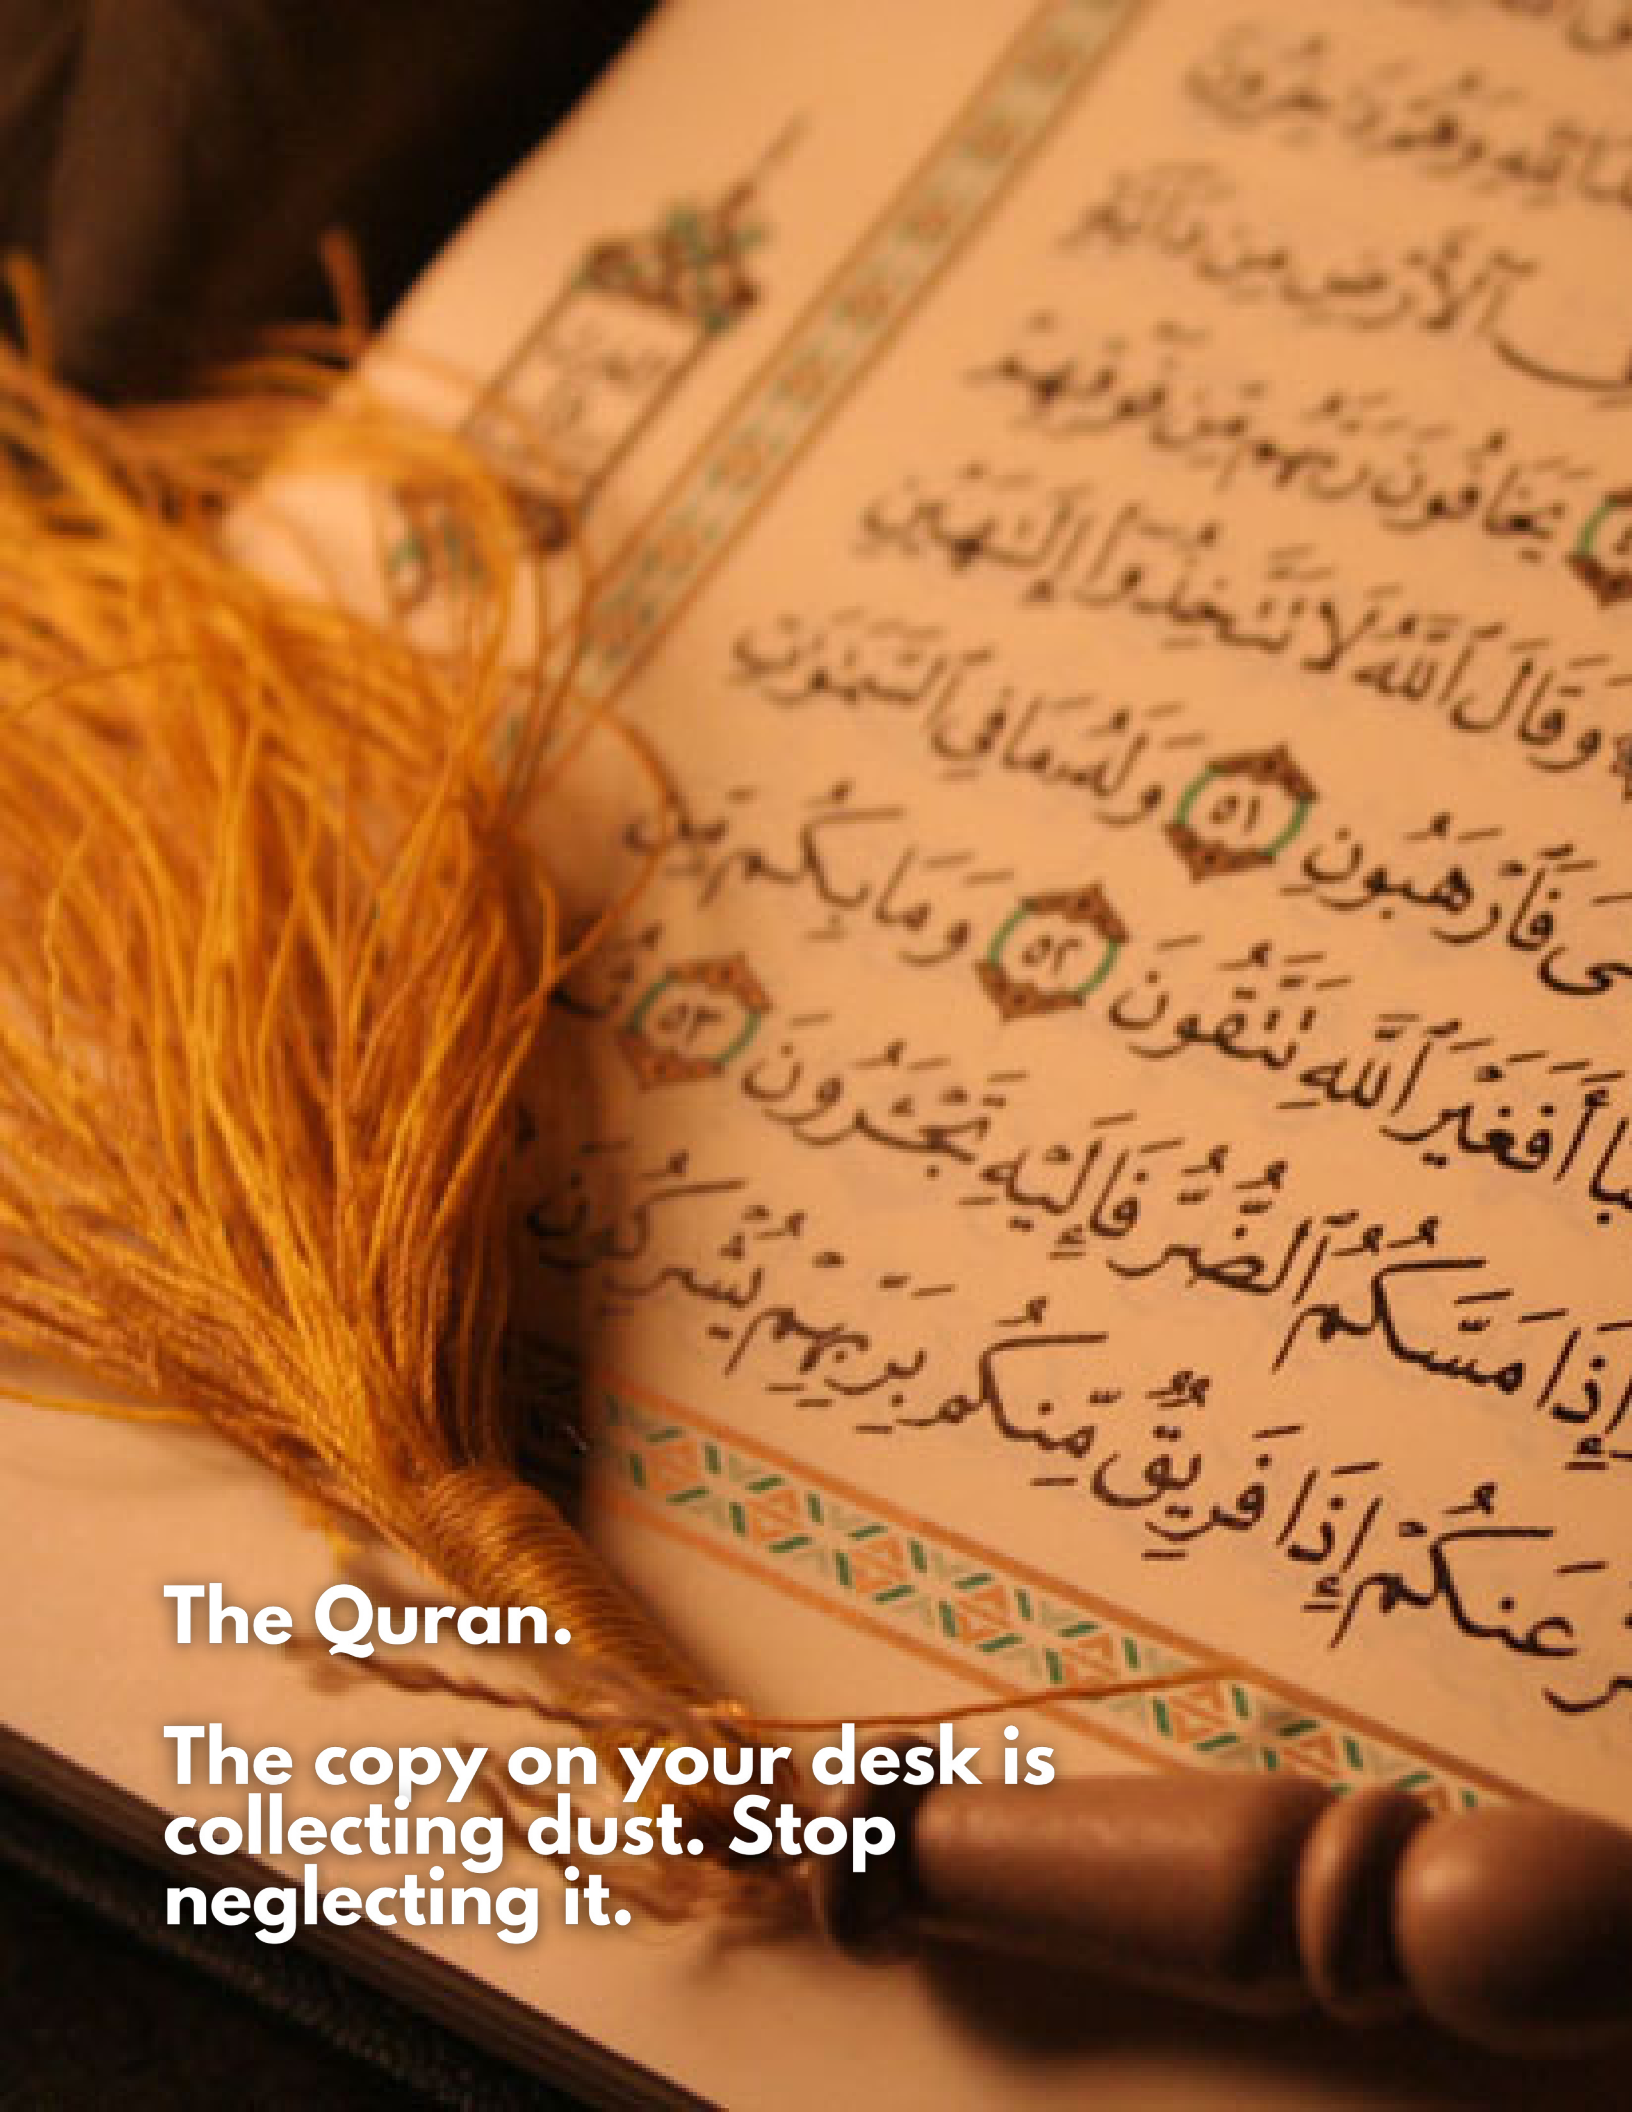 وَهُمْ دَٰخِرُونَ
ٱلْأَرْضِ مِن دَآبَّةٍ
يَخَافُونَ رَبَّهُم مِّن فَوْقِهِمْ
وَقَالَ ٱللَّهُ لَا تَتَّخِذُوٓا۟ إِلَٰهَيْنِ
فَٱرْهَبُونِ ٥١ وَلَهُۥ مَا فِى ٱلسَّمَٰوَٰتِ
أَفَغَيْرَ ٱللَّهِ تَتَّقُونَ ٥٢ وَمَا بِكُم مِّن
إِذَا مَسَّكُمُ ٱلضُّرُّ فَإِلَيْهِ تَجْـَٔرُونَ ٥٣
عَنكُمْ إِذَا فَرِيقٌ مِّنكُم بِرَبِّهِمْ يُشْرِكُونَ
The Quran.
The copy on your desk is
collecting dust. Stop
neglecting it.